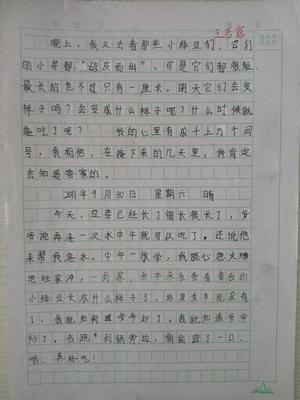 王若露
晚上，我又去看那些小绿豆们，它们
的小芽都“破皮而出”，可是它们都很短，
最长的也不过只有一厘米。明天它们会变
样子吗？会变成什么样子呢？什么时候就
能吃了呢？……我的心里有成千上万个问
号，我相信，在接下来的几天里，我肯定
会知道答案的。
2011年9月30日 星期六 晴
今天，豆芽已经长了很长很长了，爷
爷说再浇一次水中午就可以吃了。还说他
来帮我浇水。中午一放学，我就心急火燎
地往家冲，一到家，我本来准备看看我的
小绿豆长成什么样子了，结果发现没有
了，我就知道爷爷炒了，我就知道爷爷
炒了，我跑到锅旁边，偷偷尝了一口，
哦，真好吃！